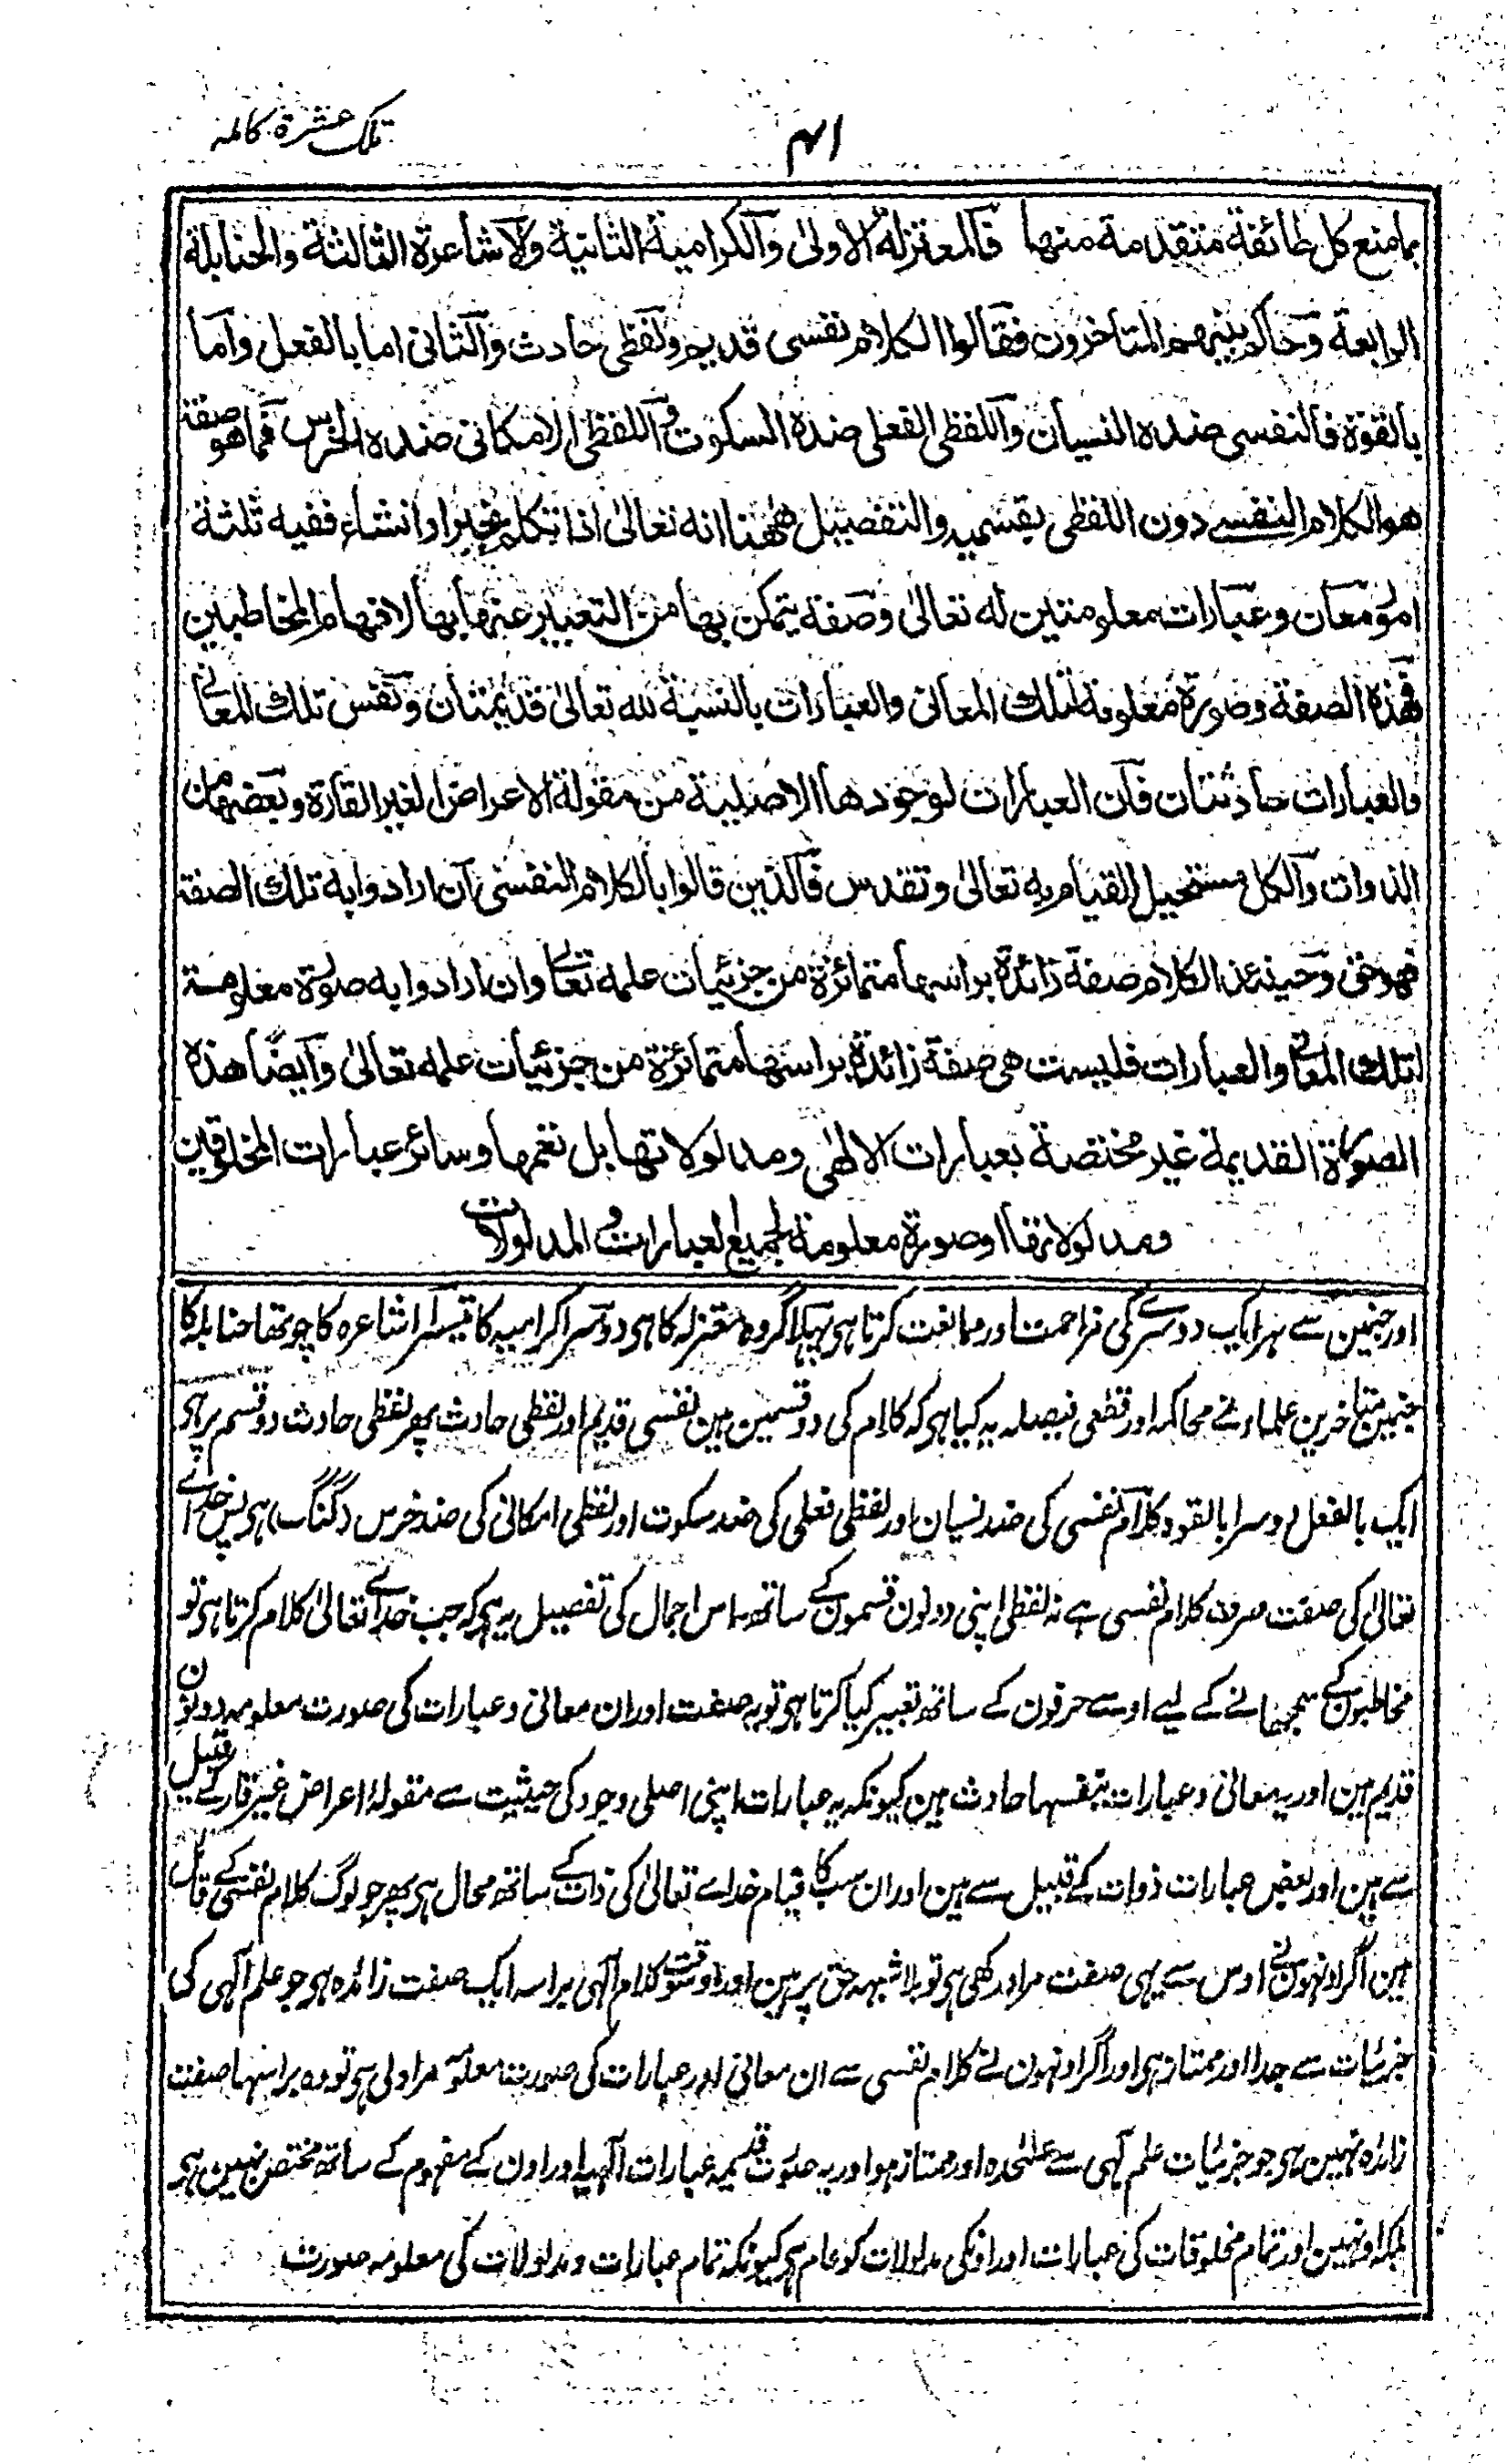 تلک عشرة کاملة
۴۱
بما منع کل طائفة متقدمة منها فالمعتزلة الاولیٰ والکرامیة الثانیة والاشاعرة الثالثة والحنابلة
الرابعة وحاکم بینهم المتاخرون فقالوا الکلام نفسی قدیم ولفظی حادث والثانی اما بالفعل واما
بالقوة فالنفسی ضده النسیان واللفظی الفعلی ضده السکوت واللفظی الامکانی ضده الخرس فما هو صفة
هو الکلام النفسے دون اللفظی بقسمیه والتفصیل ههنا انه تعالیٰ اذا تکلم بخبر او انشاء ففیه ثلثة
امور معان وعبارات معلومتین له تعالیٰ وصفة یتمکن بها من التعبیر عنها بها لافهام المخاطبین
فهذه الصفة وصورة معلومة لتلك المعانی والعبارات بالنسبة لله تعالیٰ قدیمتان ونفس تلك المعانی
والعبارات حادثتان فان العبارات لوجودها الاصلیة من مقولة الاعراض الغیر القارة وبعضها من
الذوات والکل مستحیل القیام به تعالیٰ وتقدس فالذین قالوا بالکلام النفسی ان ارادوا به تلك الصفة
فهو حق وحینئذ الکلام صفة زائدة براسها متمائزة من جزئیات علمه تعالی وان ارادوا به صورة معلومة
لتلك المعانی والعبارات فلیست هی صفة زائدة براسها متمائزة من جزئیات علمه تعالیٰ وایضًا هذه
الصورة القدیمة غیر مختصة بعبارات الالٰهی ومدلولاتها بل تعمها وسائر عبارات المخلوقین
ومدلولاتها اوصورة معلومة لجمیع العبارات والمدلولات
اور جنمین سے ہر ایک دوسرے کی مزاحمت اور ممانعت کرتا ہی پہلا گروہ معتزلہ کا ہی دوسرا کرامیہ کا تیسرا اشاعرہ کا چوتھا حنابلہ کا
جنمین متاخرین علماء نے محاکمہ اور قطعی فیصلہ یہ کیا ہی کہ کلام کی دو قسمین ہین نفسی قدیم اور لفظی حادث پھر لفظی حادث دو قسم پر ہی
ایک بالفعل دوسرا بالقوہ کلام نفسی کی ضد نسیان اور لفظی فعلی کی ضد سکوت اور لفظی امکانی کی ضد خرس (گنگ) ہی پس خداے
تعالیٰ کی صفت صرف کلام نفسی ہے نہ لفظی اپنی دونون قسمون کے ساتھ اس اجمال کی تفصیل یہ ہی کہ جب خداے تعالیٰ کلام کرتا ہی تو
مخاطبون کے سمجھانے کے لیے اوسے حرفون کے ساتھ تعبیر کیا کرتا ہی تو یہ صفت اور ان معانی و عبارات کی صورت معلومہ دونون
قدیم ہین اور یہ معانی و عبارات بنفسہا حادث ہین کیونکہ یہ عبارات اپنی اصلی وجود کی حیثیت سے مقولۂ اعراض غیر قارکے قبیل
سے ہین اور بعض عبارات ذوات کے قبیل سے ہین اور ان سب کا قیام خداے تعالیٰ کی ذات کے ساتھ محال ہی پھر جو لوگ کلام نفسی کے قائل
ہین اگر اونہون نے اوس سے یہی صفت مراد رکھی ہی تو بلا شبہہ حق پر ہین اور اوسوقت کلام الٰہی براسہ ایک صفت زائدہ ہی جو علم الٰہی کی
جزئیات سے جدا اور ممتاز ہی اور اگر اونہون نے کلام نفسی سے ان معانی اور عبارات کی صورت معلومہ مراد لی ہی تو وہ براسہا صفت
زائدہ نہین ہی جو جزئیات علم الٰہی سے علٰحدہ اور ممتاز ہو اور یہ صورت قدیمہ عبارات الٰہیہ اور اون کے مفہوم کے ساتھ مختص نہین ہی
بلکہ اونہین اور تمام مخلوقات کی عبارات اور اونکی مدلولات کو عام ہی کیونکہ تمام عبارات و مدلولات کی معلومہ صورت